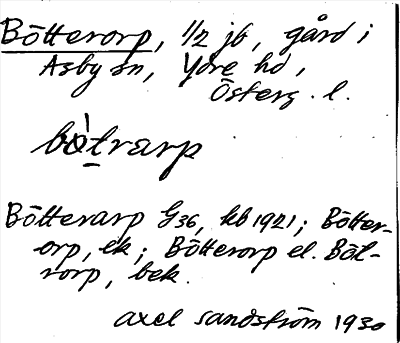 Bötterorp, 1/2 jb, gård i
Asby sn, Ydre hd,
Österg. l.
bòtrarp
Bötterarp G36, kb 1921; Bötter-
orp, ek; Bötterorp el. Böt-
rorp, bek.
Axel Sandström 1930